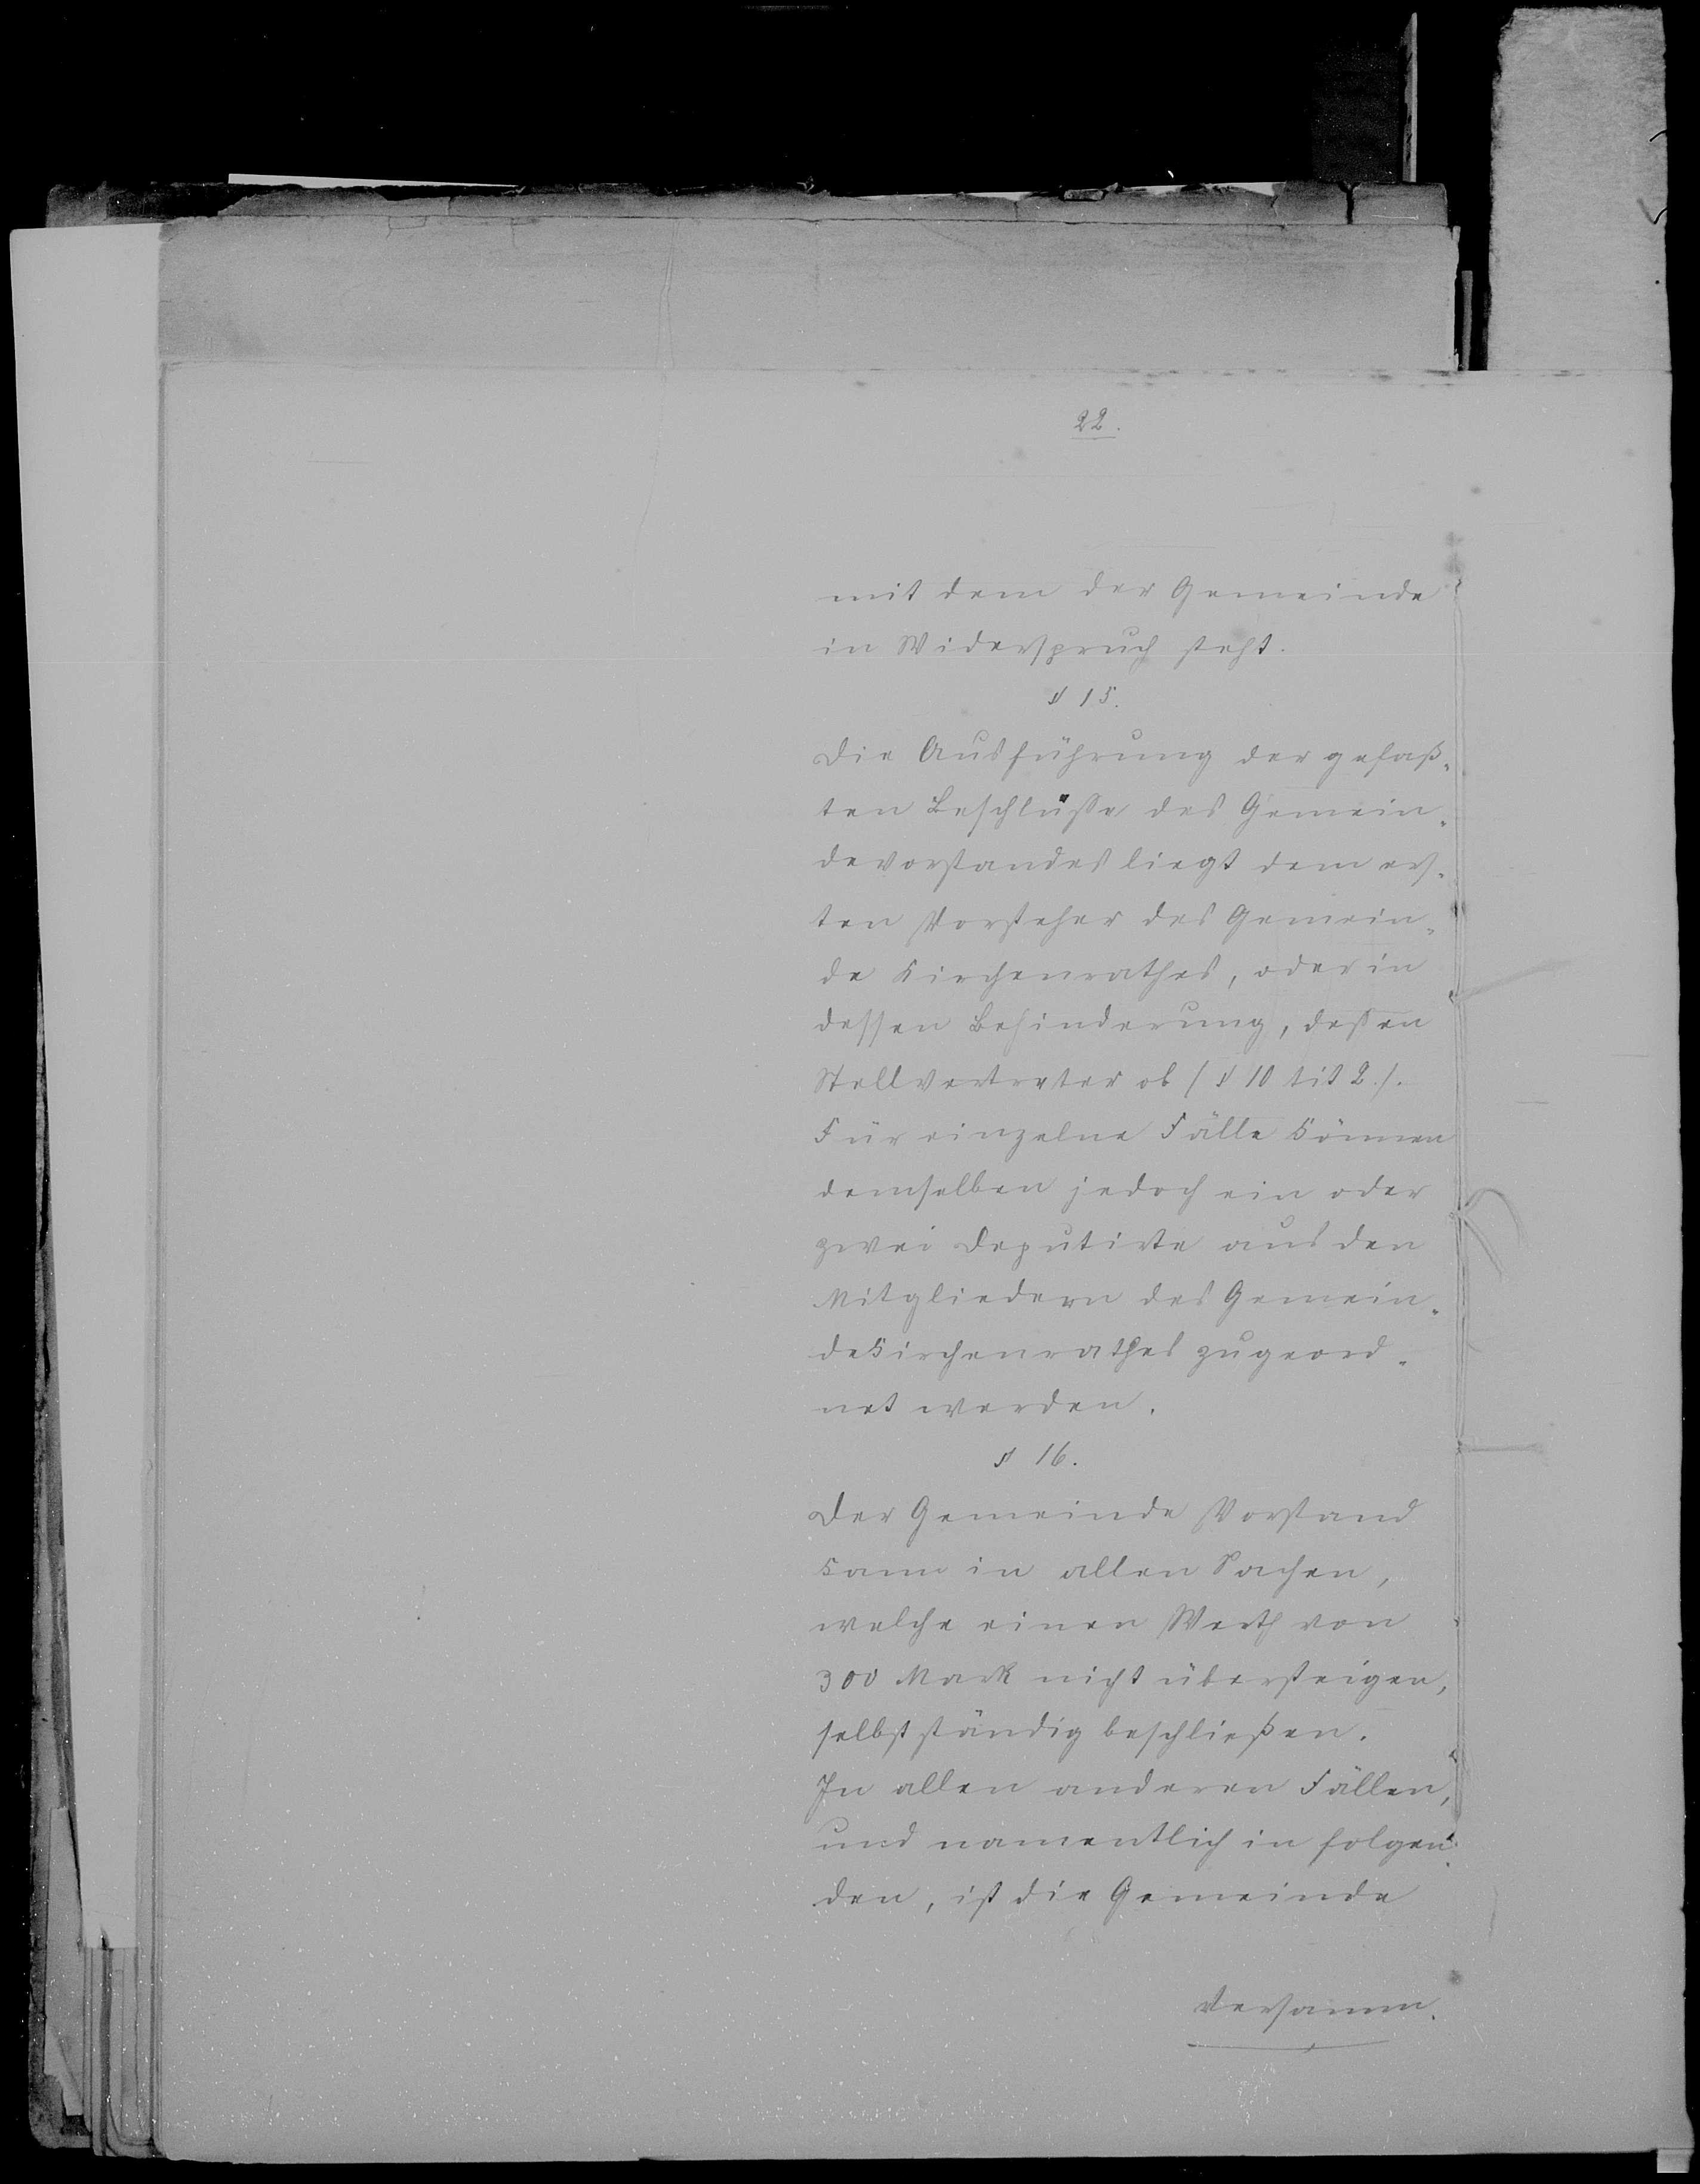 22.
mit dem der Gemeinde
in Widerspruch steht.
§ 15.
Die Ausführung der gefaß-
ten Beschlüsse des Gemein-
devorstandes liegt dem ers-
ten Vorsteher des Gemein-
de Kirchenrathes, oder in
dessen Behinderung, dessen
Stellvertreter ob (§ 10 tit 2.).
Für einzelne Fälle können
demselben jedoch ein oder
zwei Deputirte aus den
Mitgliedern des Gemein-
dekirchenrathes zugeord-
net werden.
§ 16.
Der Gemeinde Vorstand
kann in allen Sachen,
welche einen Werth von
300 Mark nicht übersteigen,
selbstständig beschließen.
In allen anderen Fällen,
und namentlich in folgen-
den, ist die Gemeinde
Versamm-